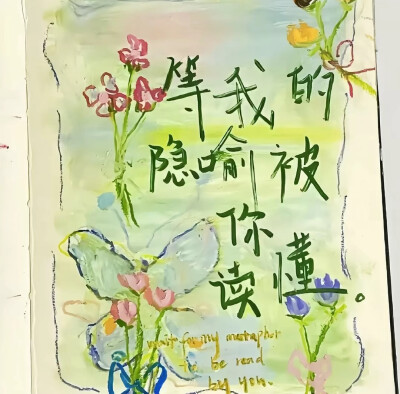 等我的
隐喻被
你
读懂。
wait for my metaphor
to be read
by you.